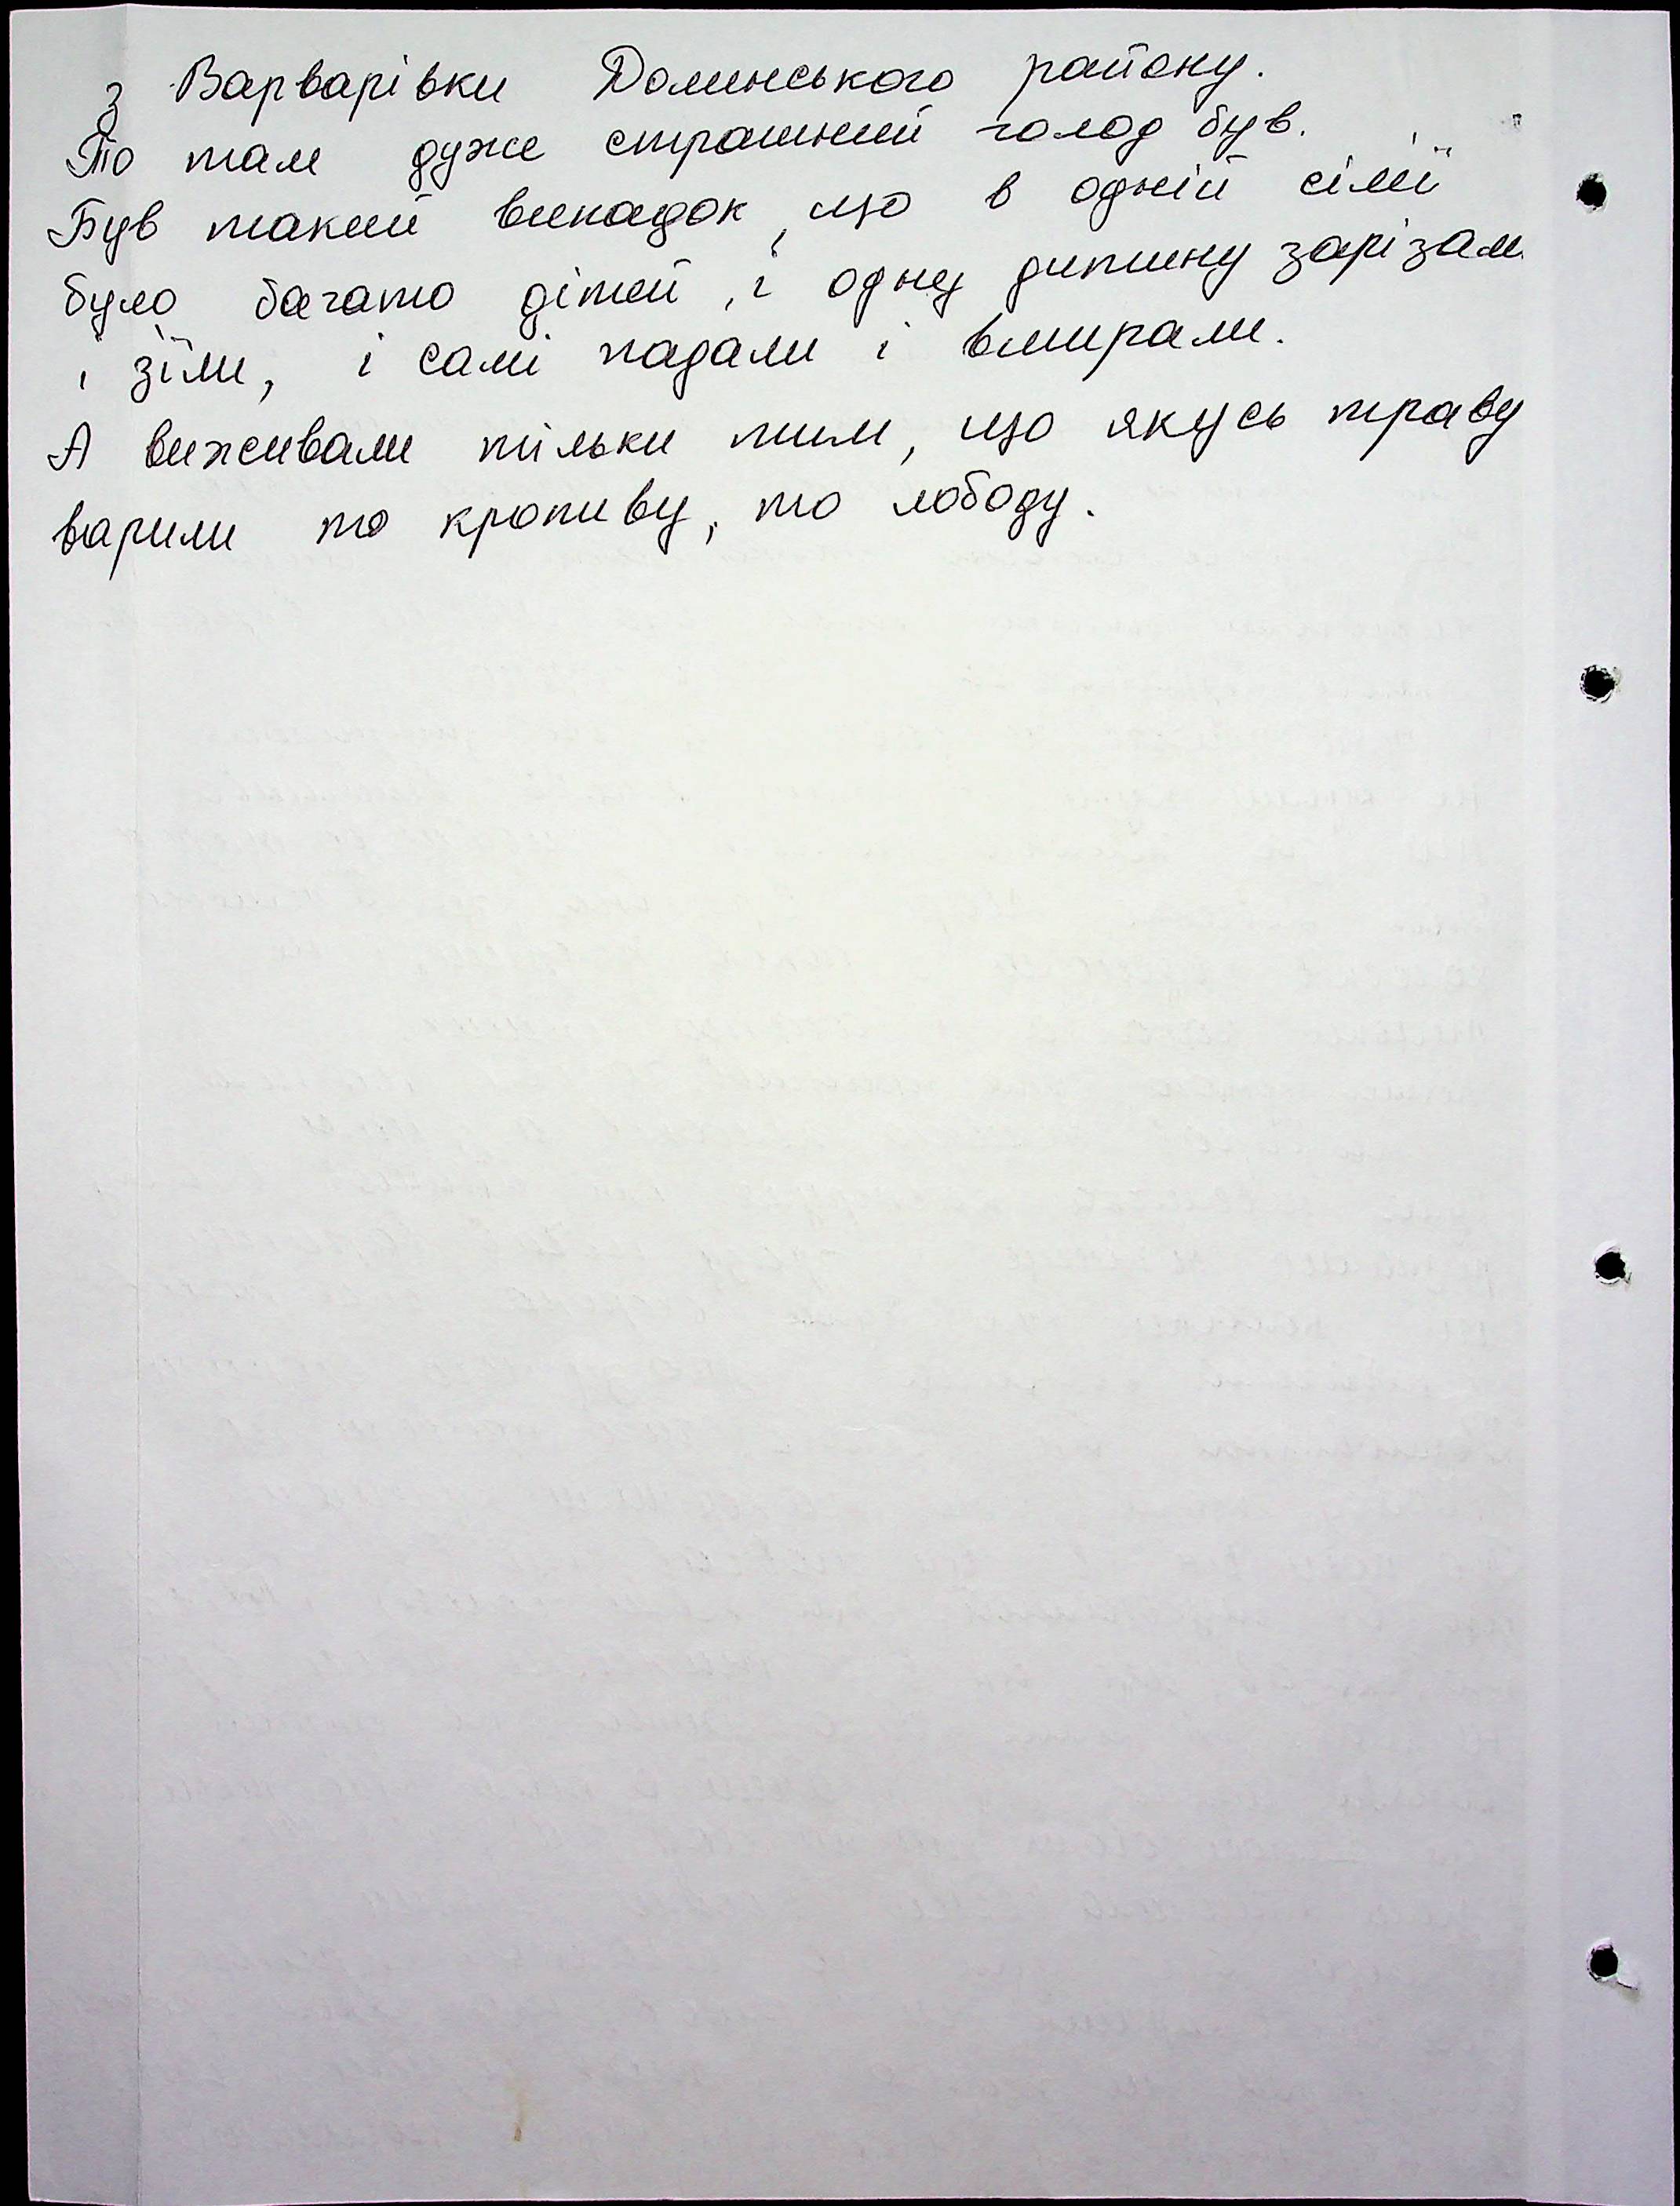 з Варварівки Долинського району.
То там дуже страшний голод був.
Був такий випадок, що в одній сім'ї
було багато дітей, і одну дитину зарізали
і з'їли, і самі падали і вмирали.
А виживали тільки тим, що якусь траву
варили то кропиву, то лободу.